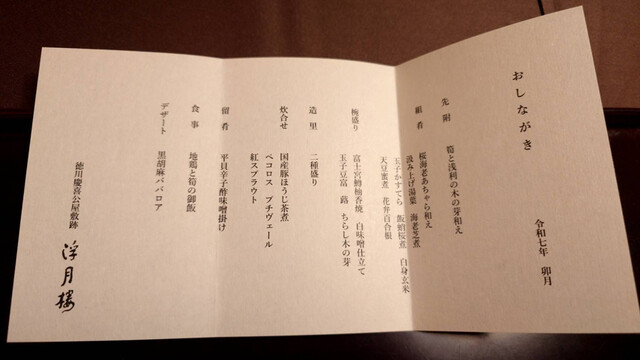 おしながき
令和七年 卯月
先附 筍と浅利の木の芽和え
組肴 桜海老あちゃら和え
汲み上げ湯葉 海老芝煮
玉子かすてら 飯蛸桜煮 白身玄米
天豆蜜煮 花弁百合根
椀盛り 富士宮鱒柚香焼 白味噌仕立て
玉子豆富 蕗 ちらし木の芽
造里 二種盛り
炊合せ 国産豚ほうじ茶煮
ペコロス プチヴェール
紅スプラウト
留肴 平貝辛子酢味噌掛け
食事 地鶏と筍の御飯
デザート 黒胡麻ババロア
徳川慶喜公屋敷跡
浮月楼